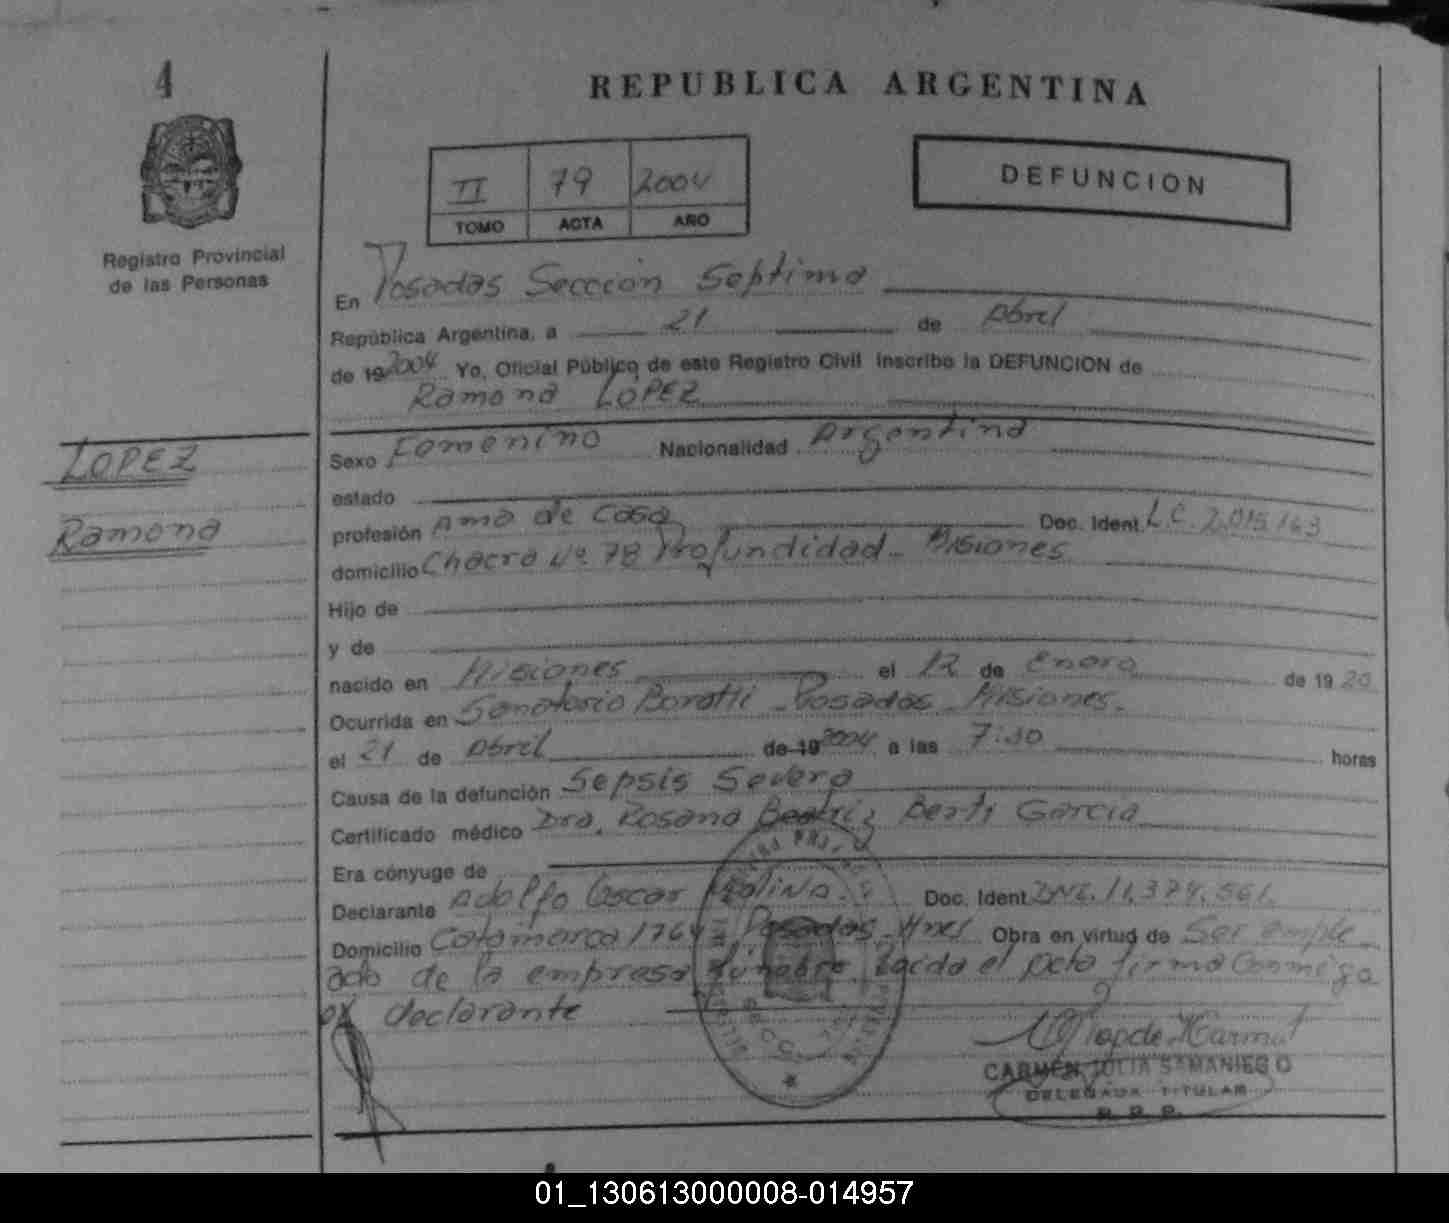 4
REPUBLICA ARGENTINA
II 79 2004
TOMO ACTA AÑO
DEFUNCION
Registro Provincial
de las Personas
En Posadas Sección Septima
República Argentina, a 21 de Abril
de 19 2004 Yo, Oficial Público de este Registro Civil inscribo la DEFUNCION de
Ramona LOPEZ
LOPEZ
Ramona
Sexo Femenino Nacionalidad Argentina
estado
profesión Ama de Casa Doc. Ident. L.C. 2.015.163
domicilio Chacra Nº 78 Profundidad - Misiones
Hijo de
y de
nacido en Misiones el 12 de Enero de 19 20
Ocurrida en Sanatorio Boratti - Posadas - Misiones.
el 21 de Abril de 19 2004 a las 7:30 horas
Causa de la defunción Sepsis Severa
Certificado médico Dra. Rosana Beatriz Berti Garcia
Era cónyuge de
Declarante Adolfo Oscar Molina. Doc. Ident DNI. 11.374.561.
Domicilio Catamarca 1764 Posadas - Mnes Obra en virtud de Ser emple
ado de la empresa fúnebre. Leida el acta firma conmigo
el declarante
CARMEN JULIA SAMANIEGO
DELEGADA TITULAR
R. P. P.
01_130613000008-014957